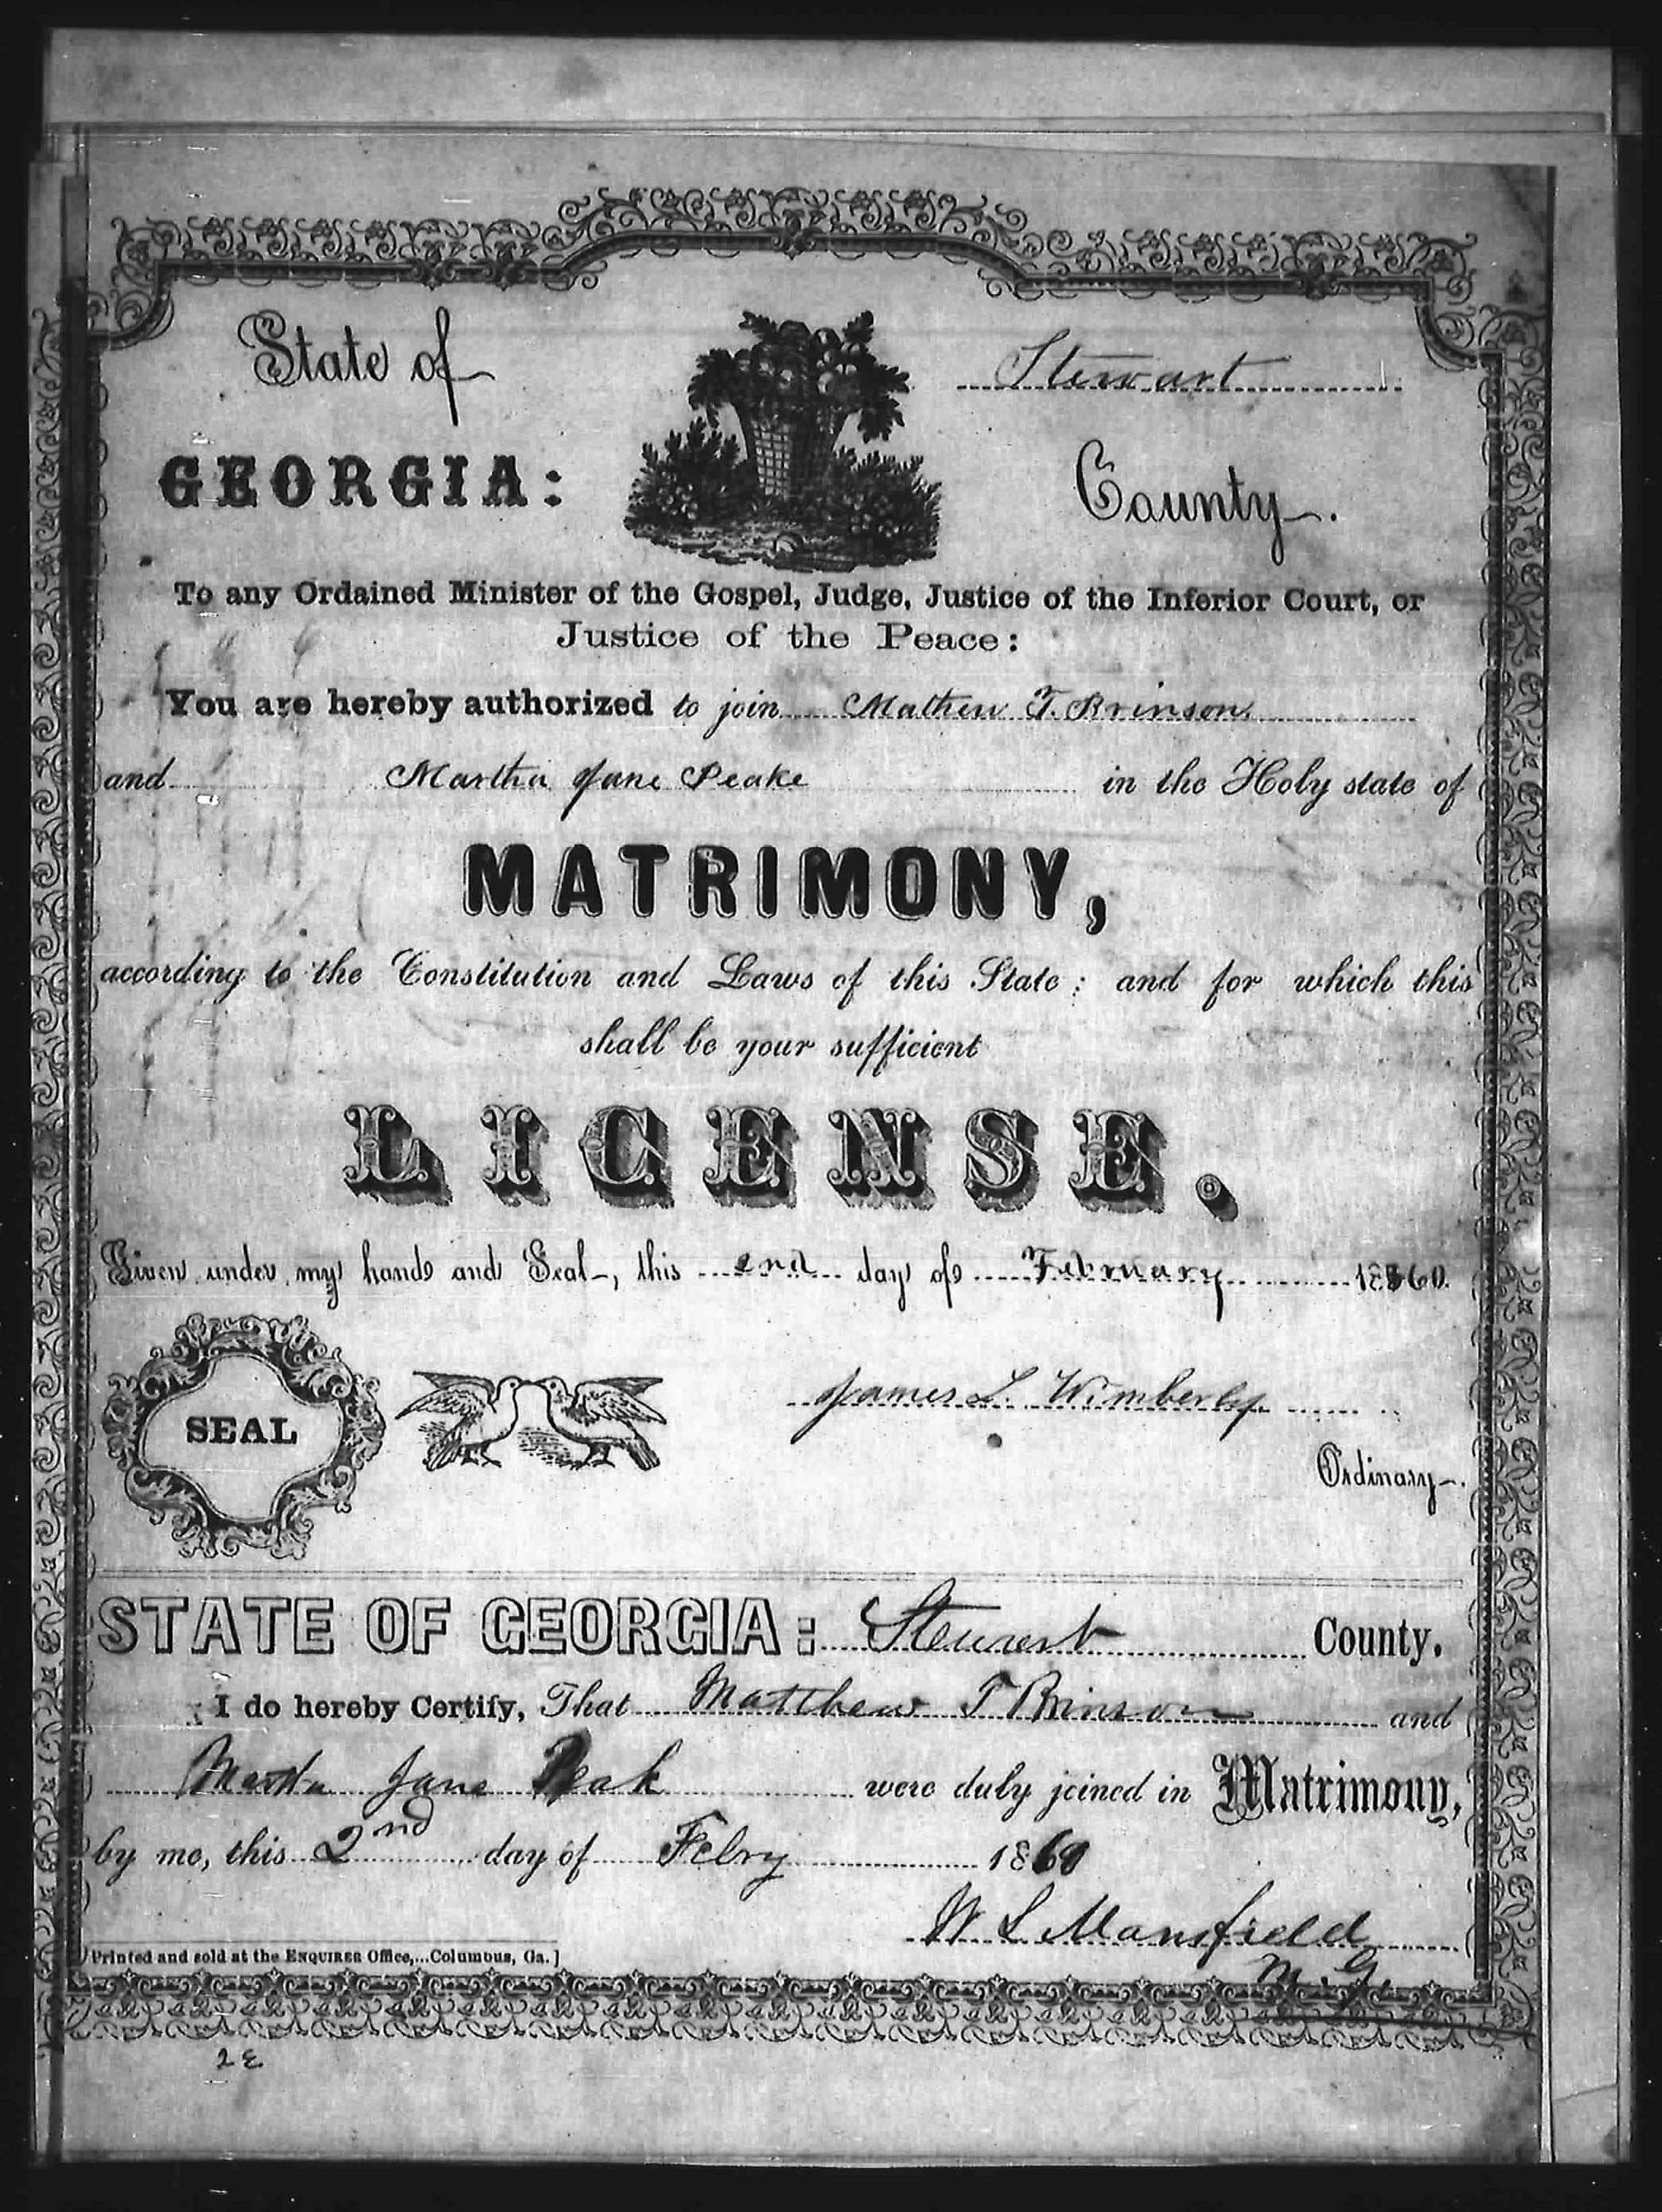 State of
Stewart
GEORGIA:
County.
To any Ordained Minister of the Gospel, Judge, Justice of the Inferior Court, or
Justice of the Peace:
You are hereby authorized to join Mathew T. Brinson
and Martha Jane Peake in the Holy state of
MATRIMONY,
according to the Constitution and Laws of this State; and for which this
shall be your sufficient
LICENSE.
Given under my hand and Seal, this 2nd day of February 1860.
SEAL
James L. Wimberly
Ordinary.
STATE OF GEORGIA: Stewart County.
I do hereby Certify, That Matthew T Brinson and
Martha Jane Peak were duly joined in Matrimony,
by me, this 2nd day of Febry 1860
W L Mansfield
M. G.
Printed and sold at the ENQUIRER Office,...Columbus, Ga. ]